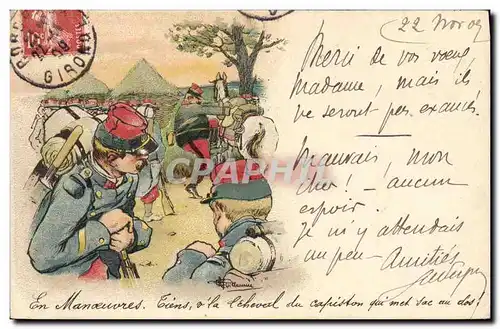 22 Nov 09
Merci de vos vœux,
Madame, mais ils
ne seront pas exaucés.
Mauvais, mon
cher! - aucun
espoir.
Je m'y attendais
un peu - Amitiés
GIRONDE
CPHAPHIL
A. Guillaume
En Manœuvres. Tiens, v'la l'cheval du capiston qui met sac au dos!